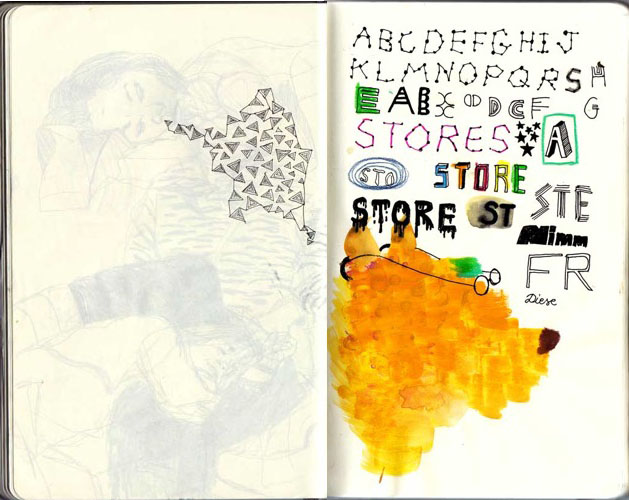 ABCDEFGHIJ
KLMNOPQRS
EAB DCF G
STORES A
STO STORE
STE
STORE ST
Nimm
FR
Diese